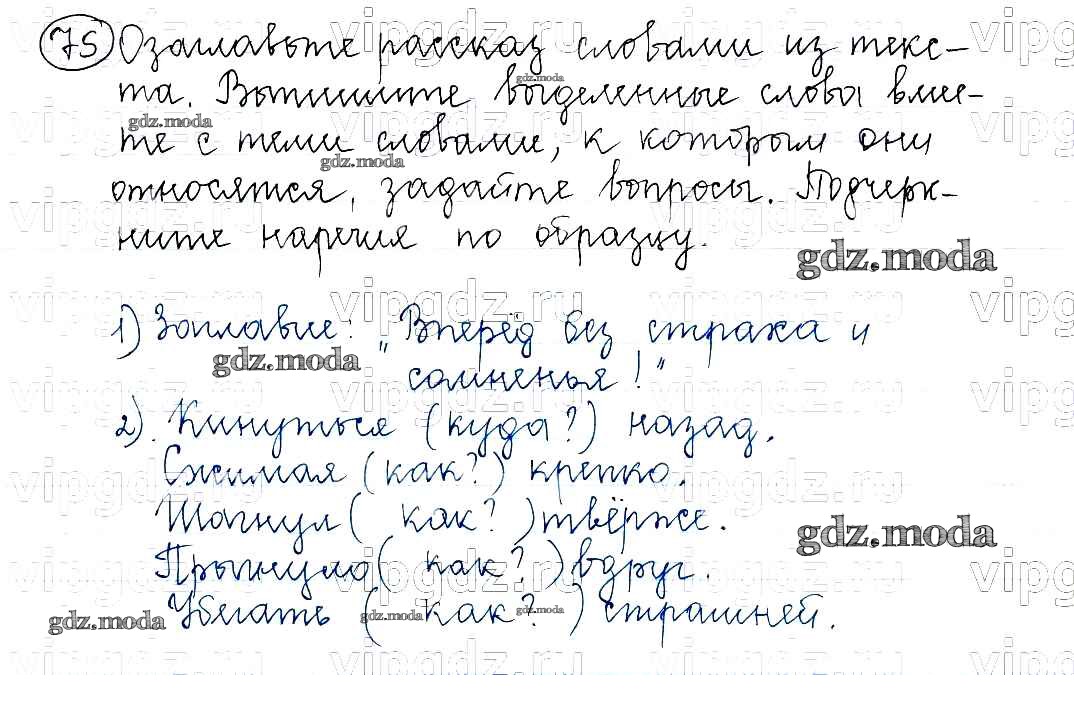 75 Озаглавьте рассказ словами из текс-
та. Выпишите выделенные слова вмес-
те с теми словами, к которым они
относятся, задайте вопросы. Подчерк-
ните наречия по образцу.
1) Заглавие: "Вперёд без страха и
сомненья!"
2). Кинуться (куда?) назад.
Сжимая (как?) крепко.
Шагнул ( как? ) твёрже.
Прыгнуло ( как? ) вдруг.
Убегать ( как? ) страшней.
gdz.moda
vipgdz.ru